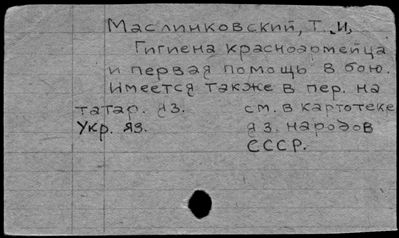 Маслинковский, Т. И,
Гигиена красноармейца
и первая помощь в бою.
Имеется также в пер. на
татар. яз. см. в картотеке
Укр. яз. яз. народов
СССР.